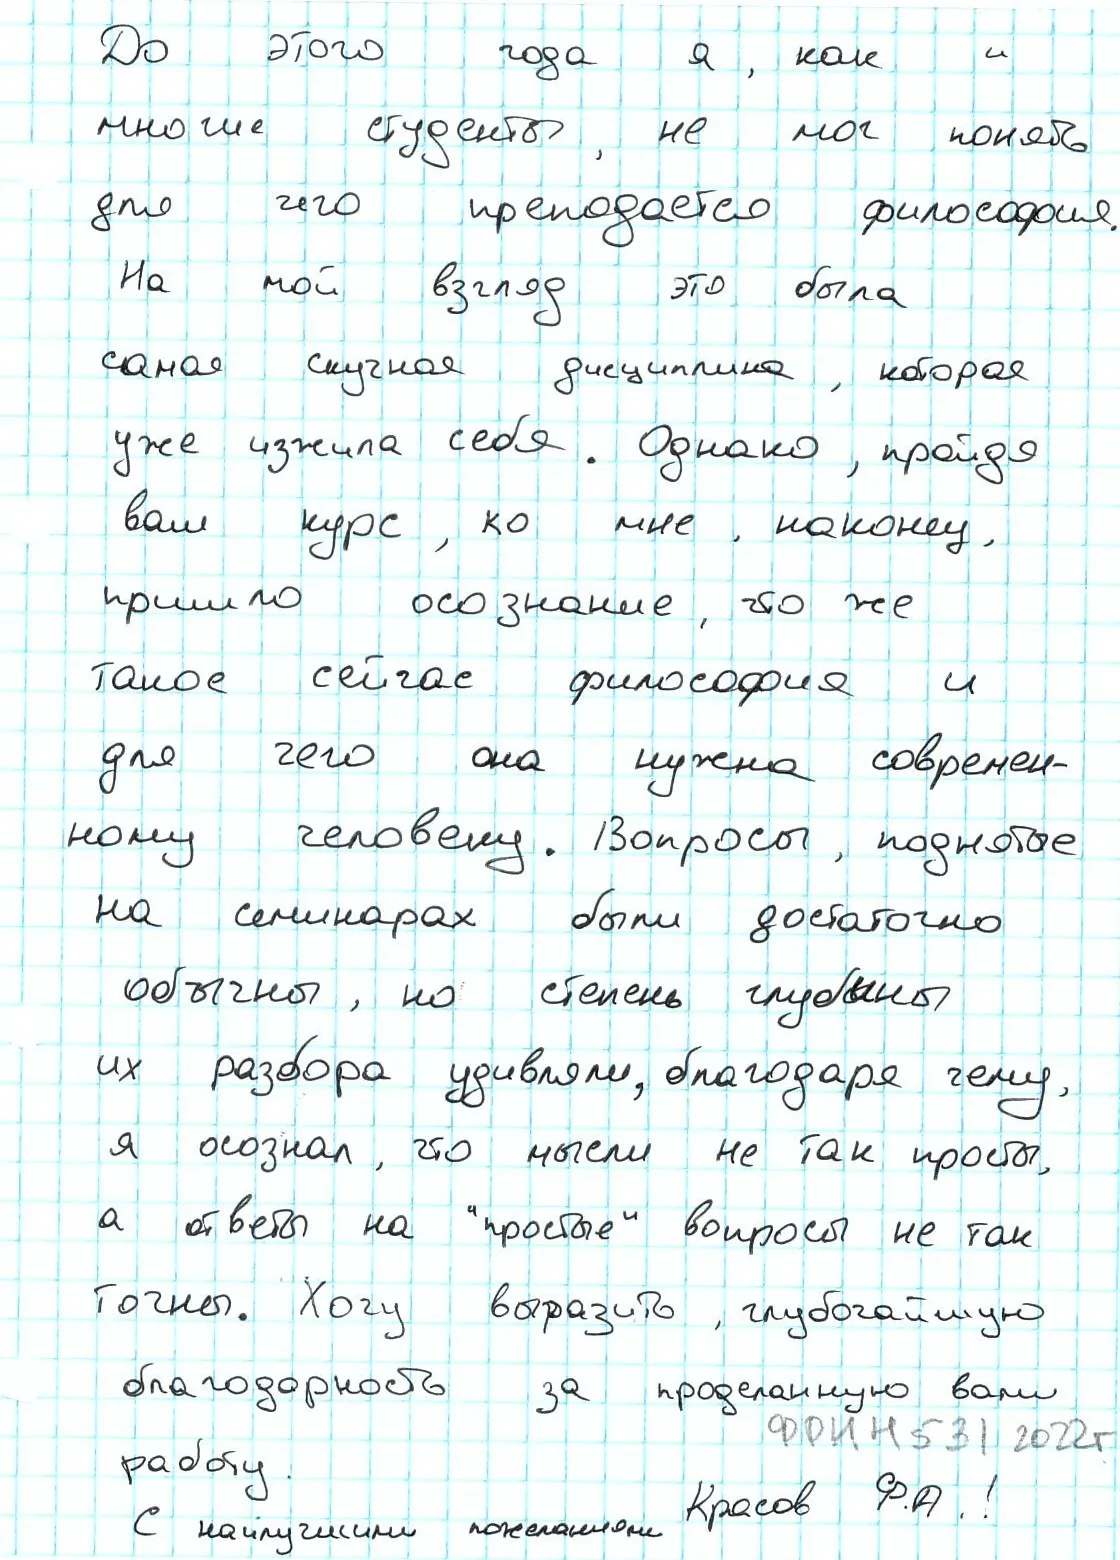 До этого года я, как и
многие студенты, не мог понять
для чего преподается философия.
На мой взгляд это была
самая скучная дисциплина, которая
уже изжила себя. Однако, пройдя
ваш курс, ко мне, наконец,
пришло осознание, что же
такое сейчас философия и
для чего она нужна современ-
ному человеку. Вопросы, поднятые
на семинарах были достаточно
обычны, но степень глубины
их разбора удивляли, благодаря чему,
я осознал, что мысли не так просты,
а ответы на "простые" вопросы не так
точны. Хочу выразить, глубочайшую
благодарность за проделанную вами
работу.
ФРИН 53 | 2022г
С наилучшими пожеланиями Красов Ф.А.!